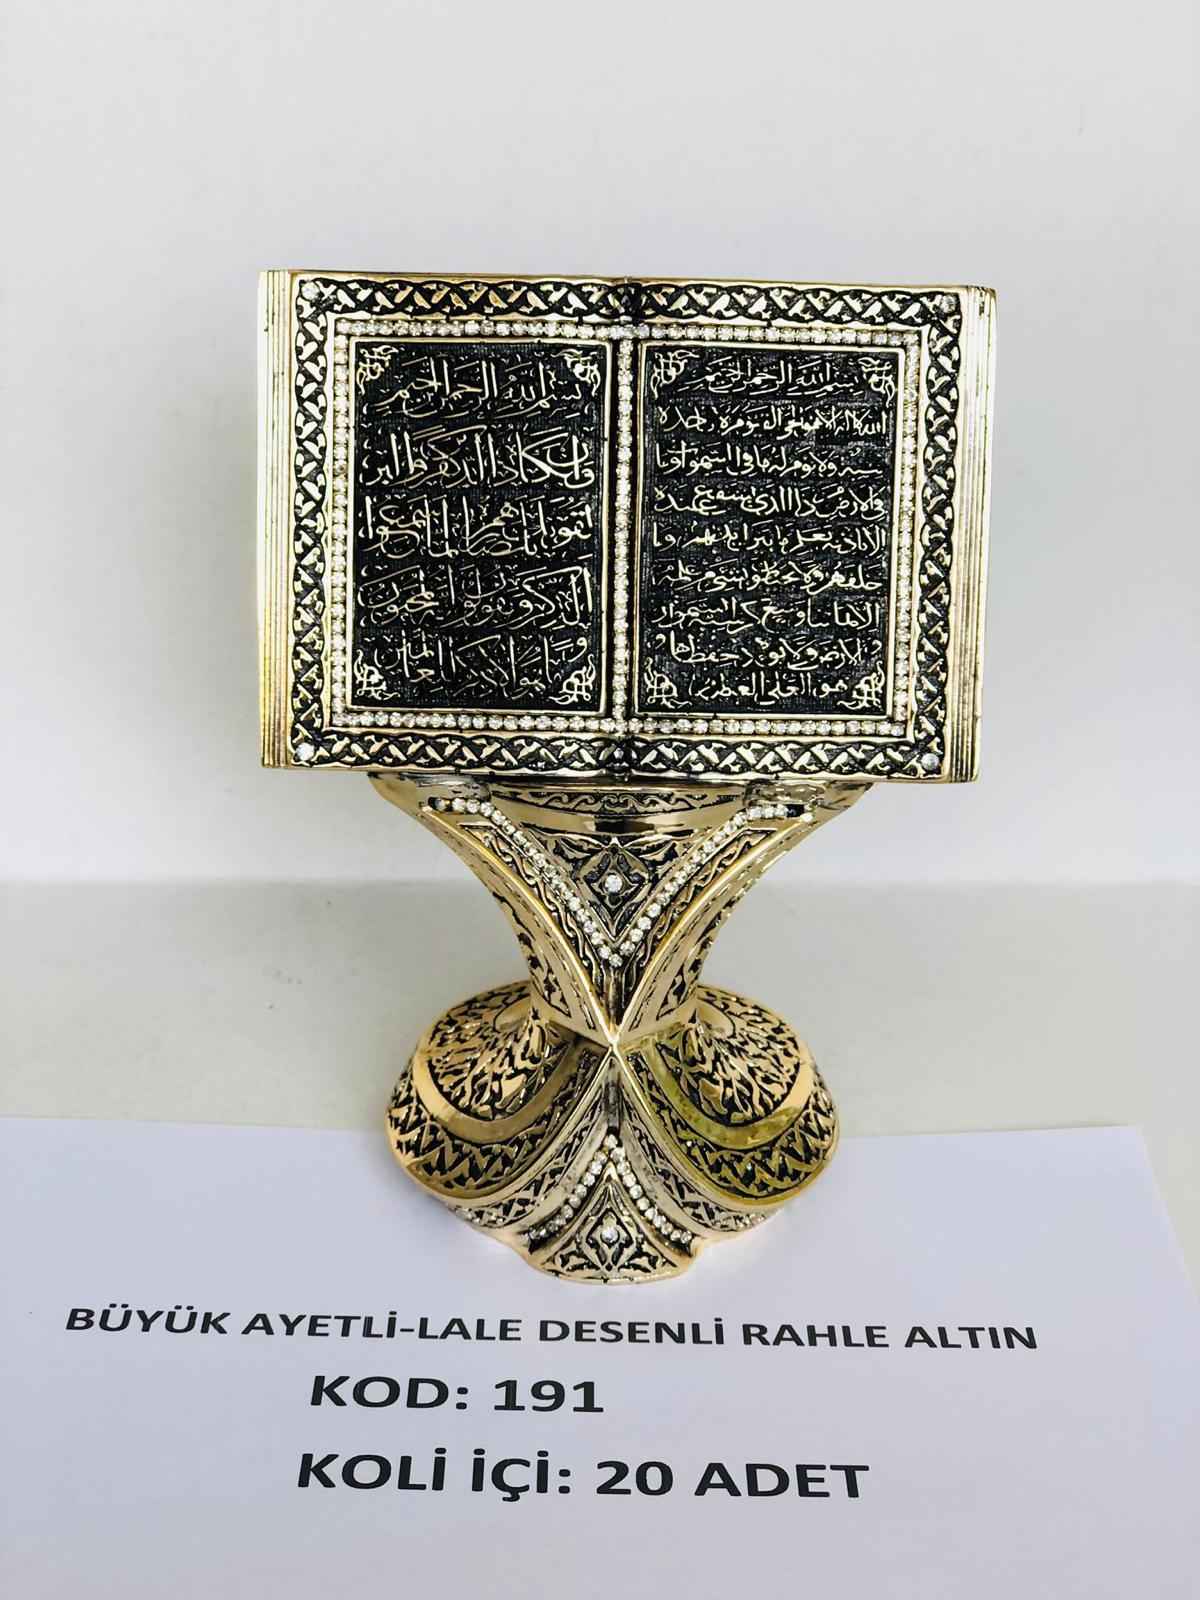 بسم الله الرحمن الرحيم
الله لا اله الا هو الحي القيوم لا تأخذه
سنة ولا نوم له ما في السموات وما
في الارض من ذا الذي يشفع عنده
الا باذنه يعلم ما بين ايديهم وما
خلفهم ولا يحيطون بشيء من علمه
الا بما شاء وسع كرسيه السموات
والارض ولا يؤده حفظهما
وهو العلي العظيم
بسم الله الرحمن الرحيم
وان يكاد الذين كفروا ليز
لقونك بابصارهم لما سمعوا
الذكر ويقولون انه لمجنون
وما هو الا ذكر للعالمين
BÜYÜK AYETLİ-LALE DESENLİ RAHLE ALTIN
KOD: 191
KOLİ İÇİ: 20 ADET